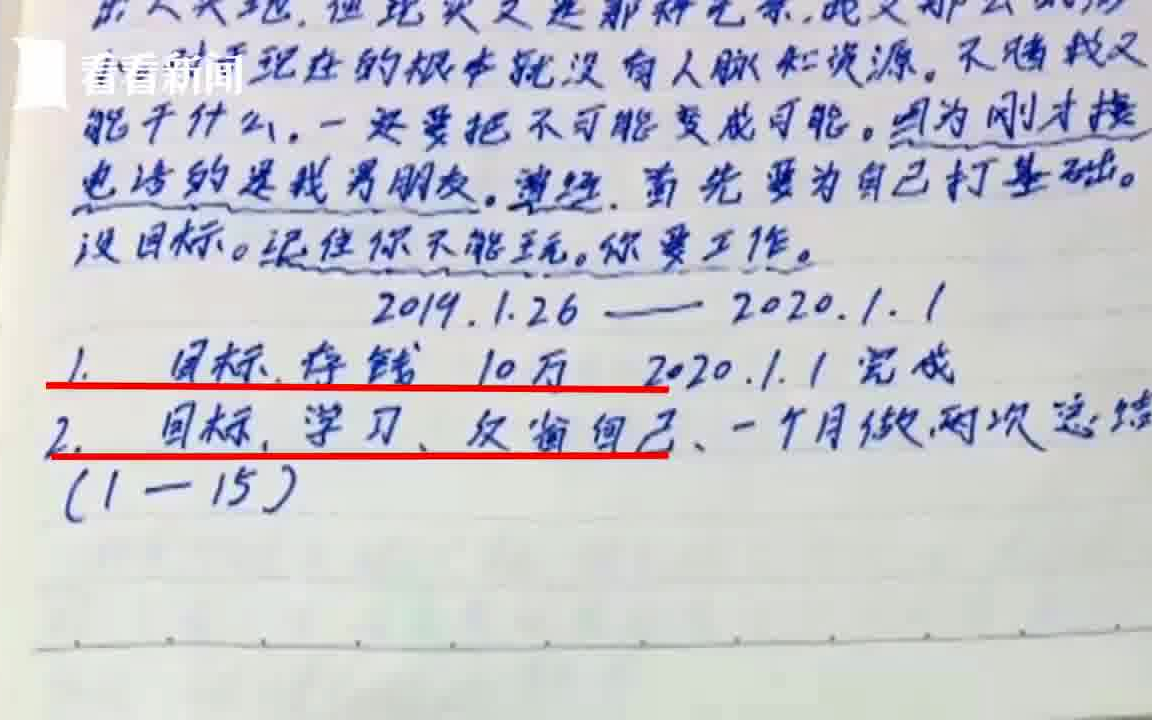 看看新闻
出人头地,但现实又是那种
现在的根本就没有人脉和资源。不赌我又
能干什么,一定要把不可能变成可能。因为刚才接
电话的是我男朋友。 首先要为自己打基础。
没目标。记住你不能玩。你要工作。
2019.1.26 — 2020.1.1
1. 目标、存钱 10万 2020.1.1 完成
2. 目标、学习、反省自己、一个月做两次总结
(1 — 15)